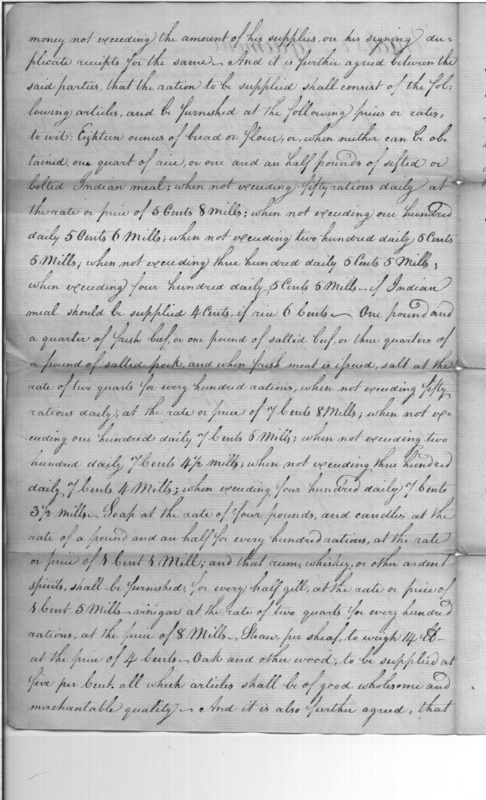 money not exceeding the amount of his supplies, on his signing du-
plicate receipts for the same And it is further agreed between the
said parties, that the ration to be supplied shall consist of the fol-
lowing articles, and be furnished at the following prices or rates,
to wit: Eighteen ounces of bread or flour, or, when neither can be ob-
tained, one quart of rice, or one and an half pounds of sifted or
bolted Indian meal; when not exceeding fifty rations daily at
the rate or price of 5 Cents 8 Mills; when not exceeding one hundred
daily 5 Cents 6 Mills; when not exceeding two hundred daily 5 Cents
5 Mills, when not exceeding three hundred daily 5 Cents 5 Mills;
when exceeding four hundred daily 5 Cents 5 Mills if Indian
meal should be supplied 4 Cents, if rice 6 Cents One pound and
a quarter of fresh beef, or one pound of salted beef, or three quarters of
a pound of salted pork, and when fresh meat is issued, salt at the
rate of two quarts for every hundred rations, when not exceeding fifty
rations daily, at the rate or price of 7 Cents 8 Mills; when not ex-
ceeding one hundred daily 7 Cents 5 Mills; when not exceeding two
hundred daily 7 Cents 4½ mills, when not exceeding three hundred
daily, 7 Cents 4 Mills; when exceeding four hundred daily 7 Cents
3½ mills. Soap at the rate of four pounds, and candles at the
rate of a pound and an half for every hundred rations, at the rate
or price of 1 Cent 1 Mill; and that rum, whiskey, or other ardent
spirits, shall be furnished, for every half gill, at the rate or price of
1 Cent 5 Mills vinegar at the rate of two quarts for every hundred
rations, at the price of 8 Mills Straw, per sheaf, to weigh 14 lb
at the price of 4 Cents Oak and other wood, to be supplied at
five per Cent, all which articles shall be of good wholesome and
merchantable quality And it is also further agreed, that